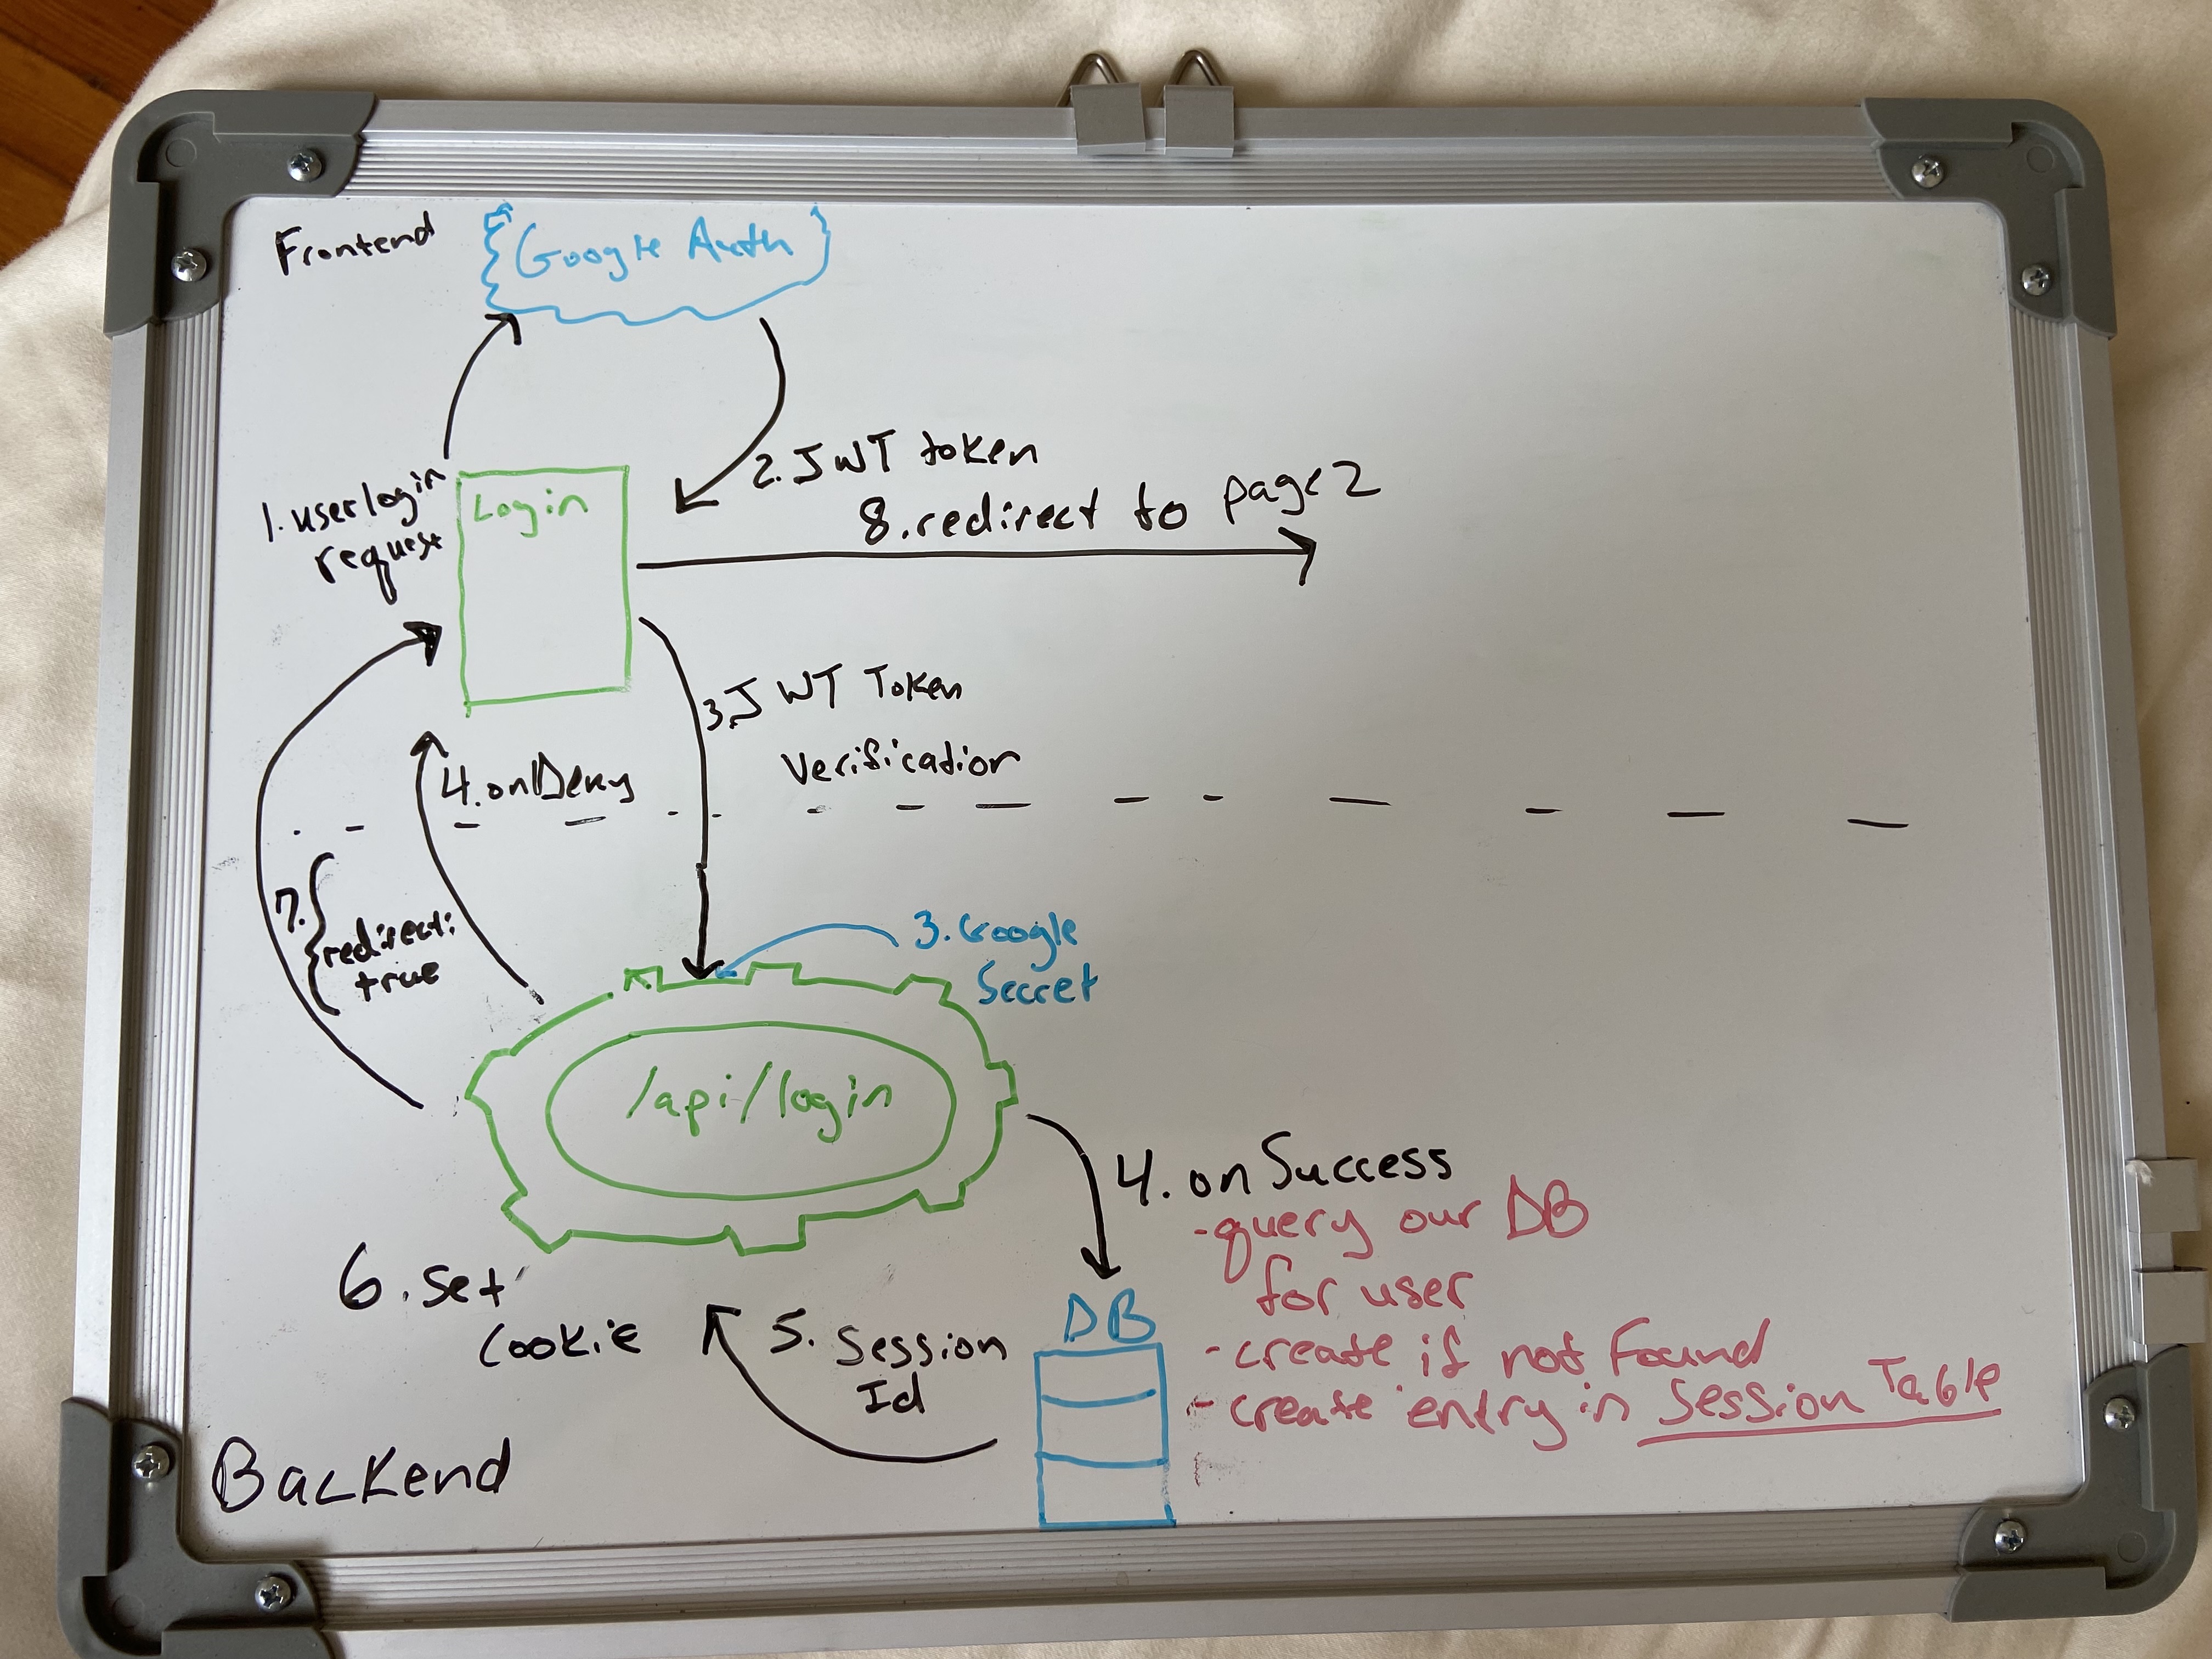 Frontend
Google Auth
1. user login
request
Login
2. JWT token
8. redirect to page 2
3. JWT Token
Verification
4. onDeny
7. {
redirect:
true
3. Google
Secret
/api/login
4. onSuccess
- query our DB
for user
- create if not found
- create entry in Session Table
DB
5. Session
Id
6. set
cookie
Backend